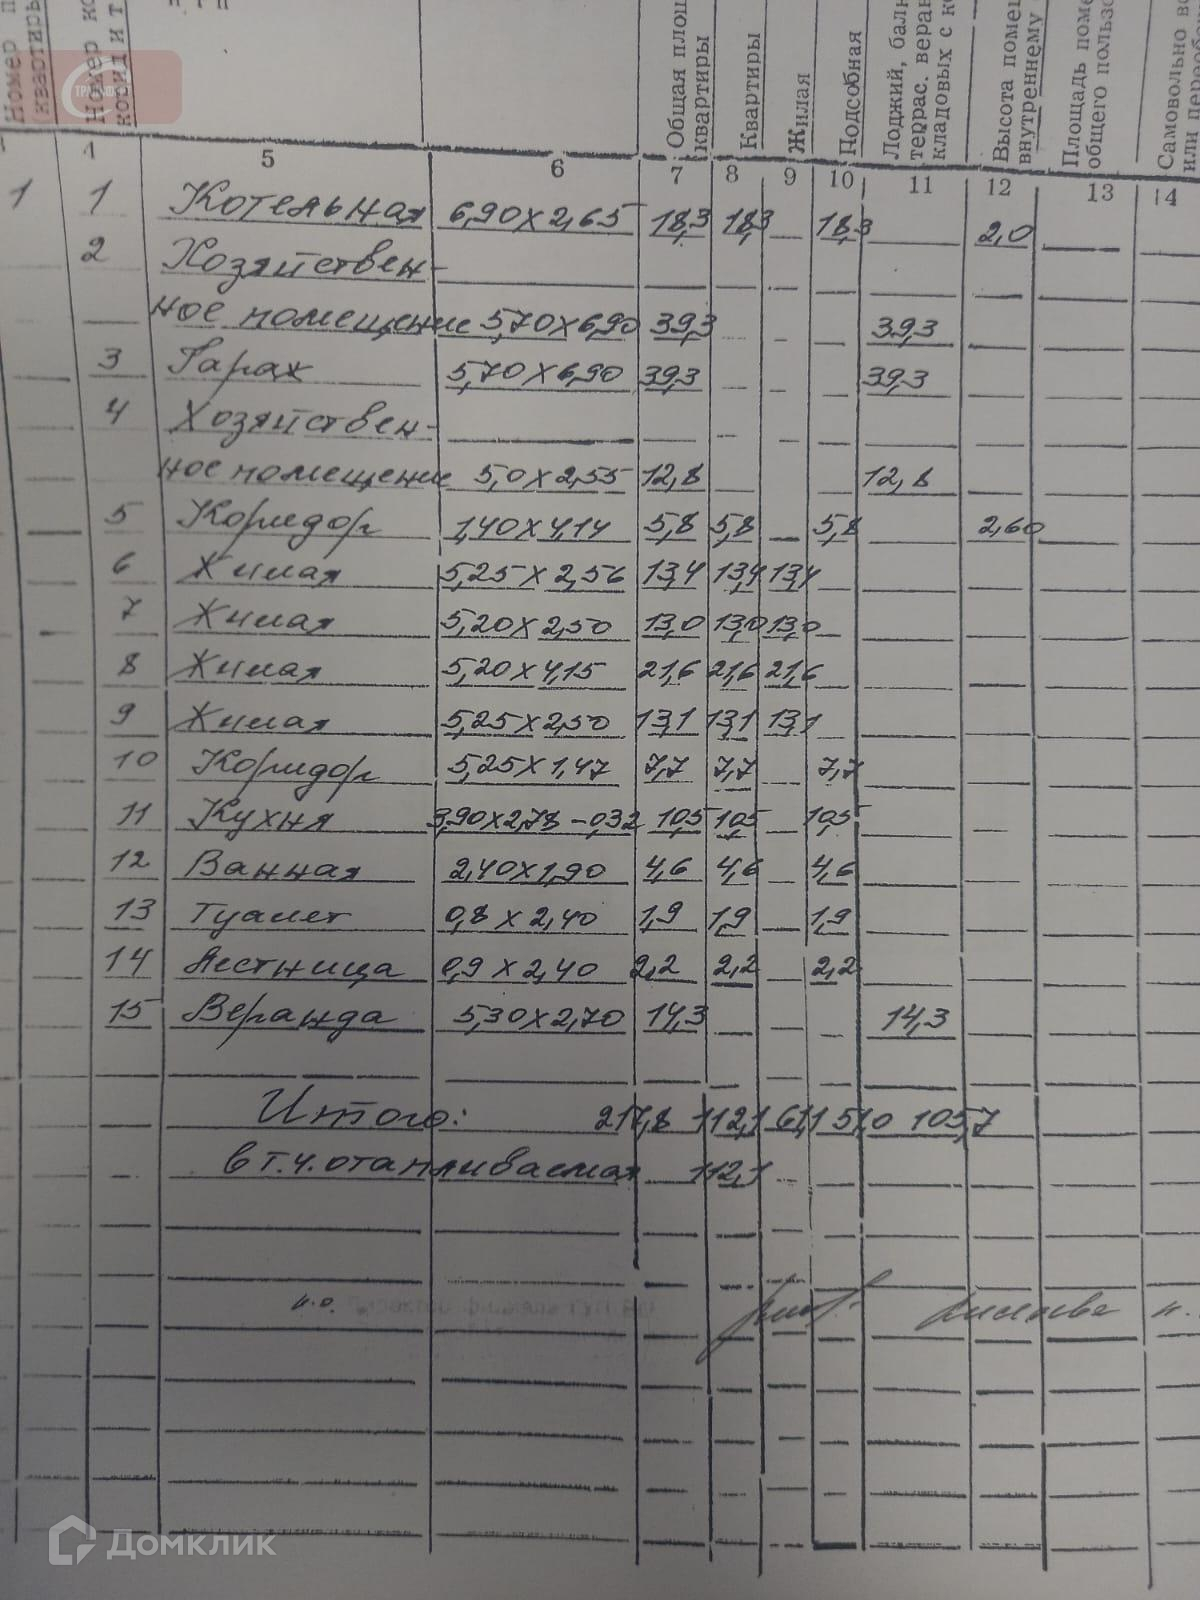 Номер п
(квартиры
Номер ко
корид и т
Общая площ
квартиры
Квартиры
Жилая
Подсобная
Лоджий, бал
террас. веран
кладовых с к
Высота помещ
внутреннему
Площадь поме
общего пользо
Самовольно во
или переобо
4 5 6 7 8 9 10 11 12 13 14
1 1 Котельная 6,90х2,65 18,3 18,3 — 18,3 2,0
2 Хозяйствен-
ное помещение 5,70х6,90 39,3 39,3
3 Гараж 5,70х6,90 39,3 39,3
4 Хозяйствен-
ное помещение 5,0х2,55 12,8 12,8
5 Коридор 1,40х4,14 5,8 5,8 — 5,8 2,60
6 Жилая 5,25х2,56 13,4 13,4 13,4
7 Жилая 5,20х2,50 13,0 13,0 13,0
8 Жилая 5,20х4,15 21,6 21,6 21,6
9 Жилая 5,25х2,50 13,1 13,1 13,1
10 Коридор 5,25х1,47 7,7 7,7 7,7
11 Кухня 3,90х2,78-0,32 10,5 10,5 10,5
12 Ванная 2,40х1,90 4,6 4,6 4,6
13 Туалет 0,8х2,40 1,9 1,9 1,9
14 Лестница 0,9х2,40 2,2 2,2 2,2
15 Веранда 5,30х2,70 14,3 14,3
Итого: 217,8 112,1 61,1 51,0 105,7
в т.ч. отапливаемая 112,1
и.о.
Домклик